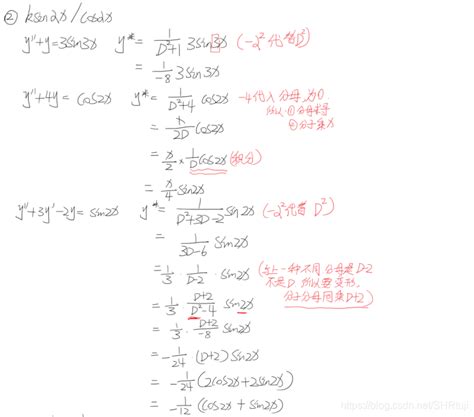 ② ksin2x/cos2x
y''+y=3sin3x y*= 1/(D²+1) 3sin3x (-2²代替D²)
= 1/-8 3sin3x
y''+4y=cos2x y*= 1/(D²+4) cos2x -4代入分母为0
所以①分母求导
= x/2D cos2x ②分子乘x
= x/2 × 1/D cos2x (积分)
= x/4 sin2x
y''+3y'-2y=sin2x y*= 1/(D²+3D-2) sin2x (-2²代替D²)
= 1/(3D-6) sin2x
= 1/3 · 1/(D-2) · sin2x (与上一种不同 分母是D-2
不是D 所以要变形,
= 1/3 · (D+2)/(D²-4) sin2x 分子分母同乘D+2)
= 1/3 · (D+2)/-8 sin2x
= -1/24 (D+2)sin2x
= -1/24 (2cos2x+2sin2x)
= 1/-12 (cos2x+sin2x)